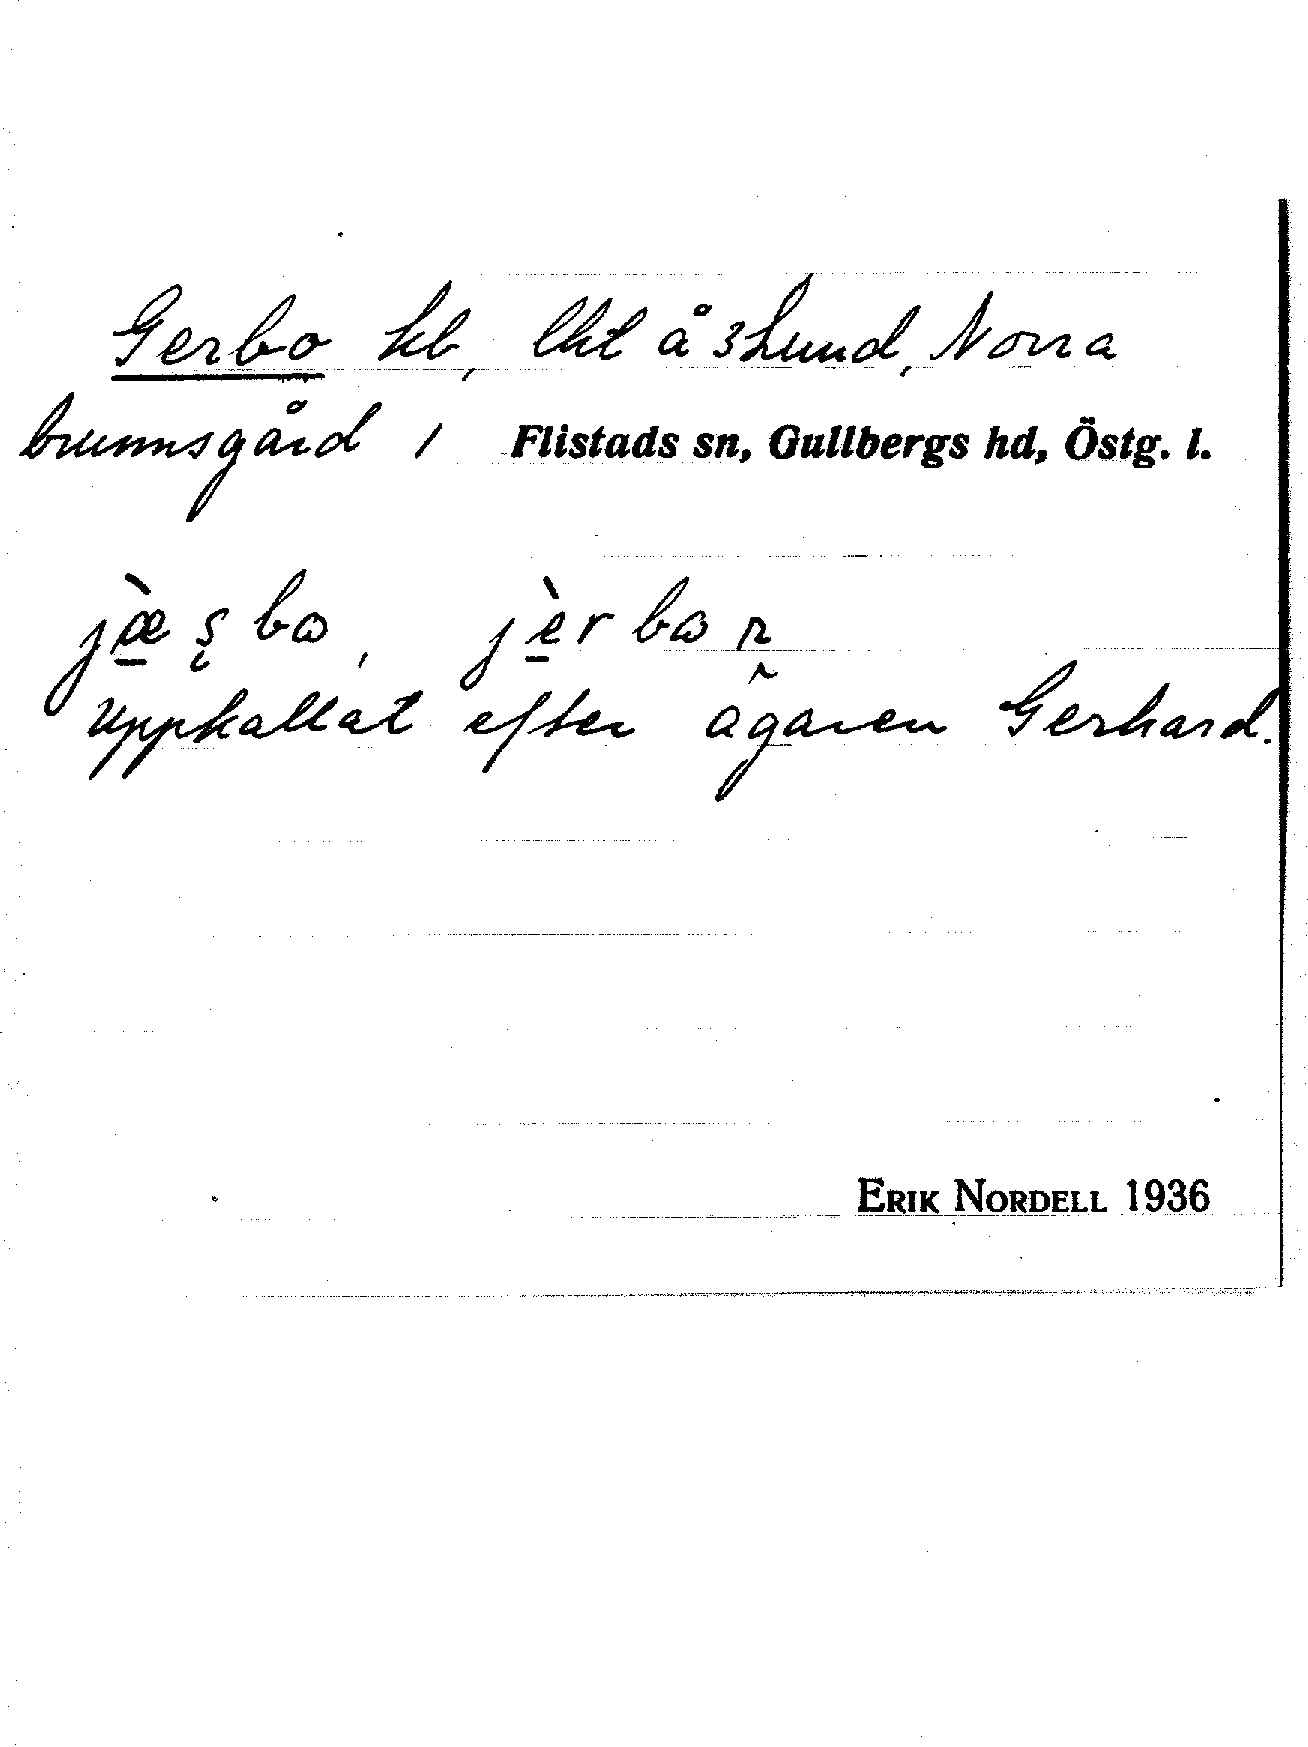 Gerbo hb, lht å 3 Lund, Norra
brunnsgård / Flistads sn, Gullbergs hd, Östg. l.
Uppkallat efter ägaren Gerhard.
ERIK NORDELL 1936